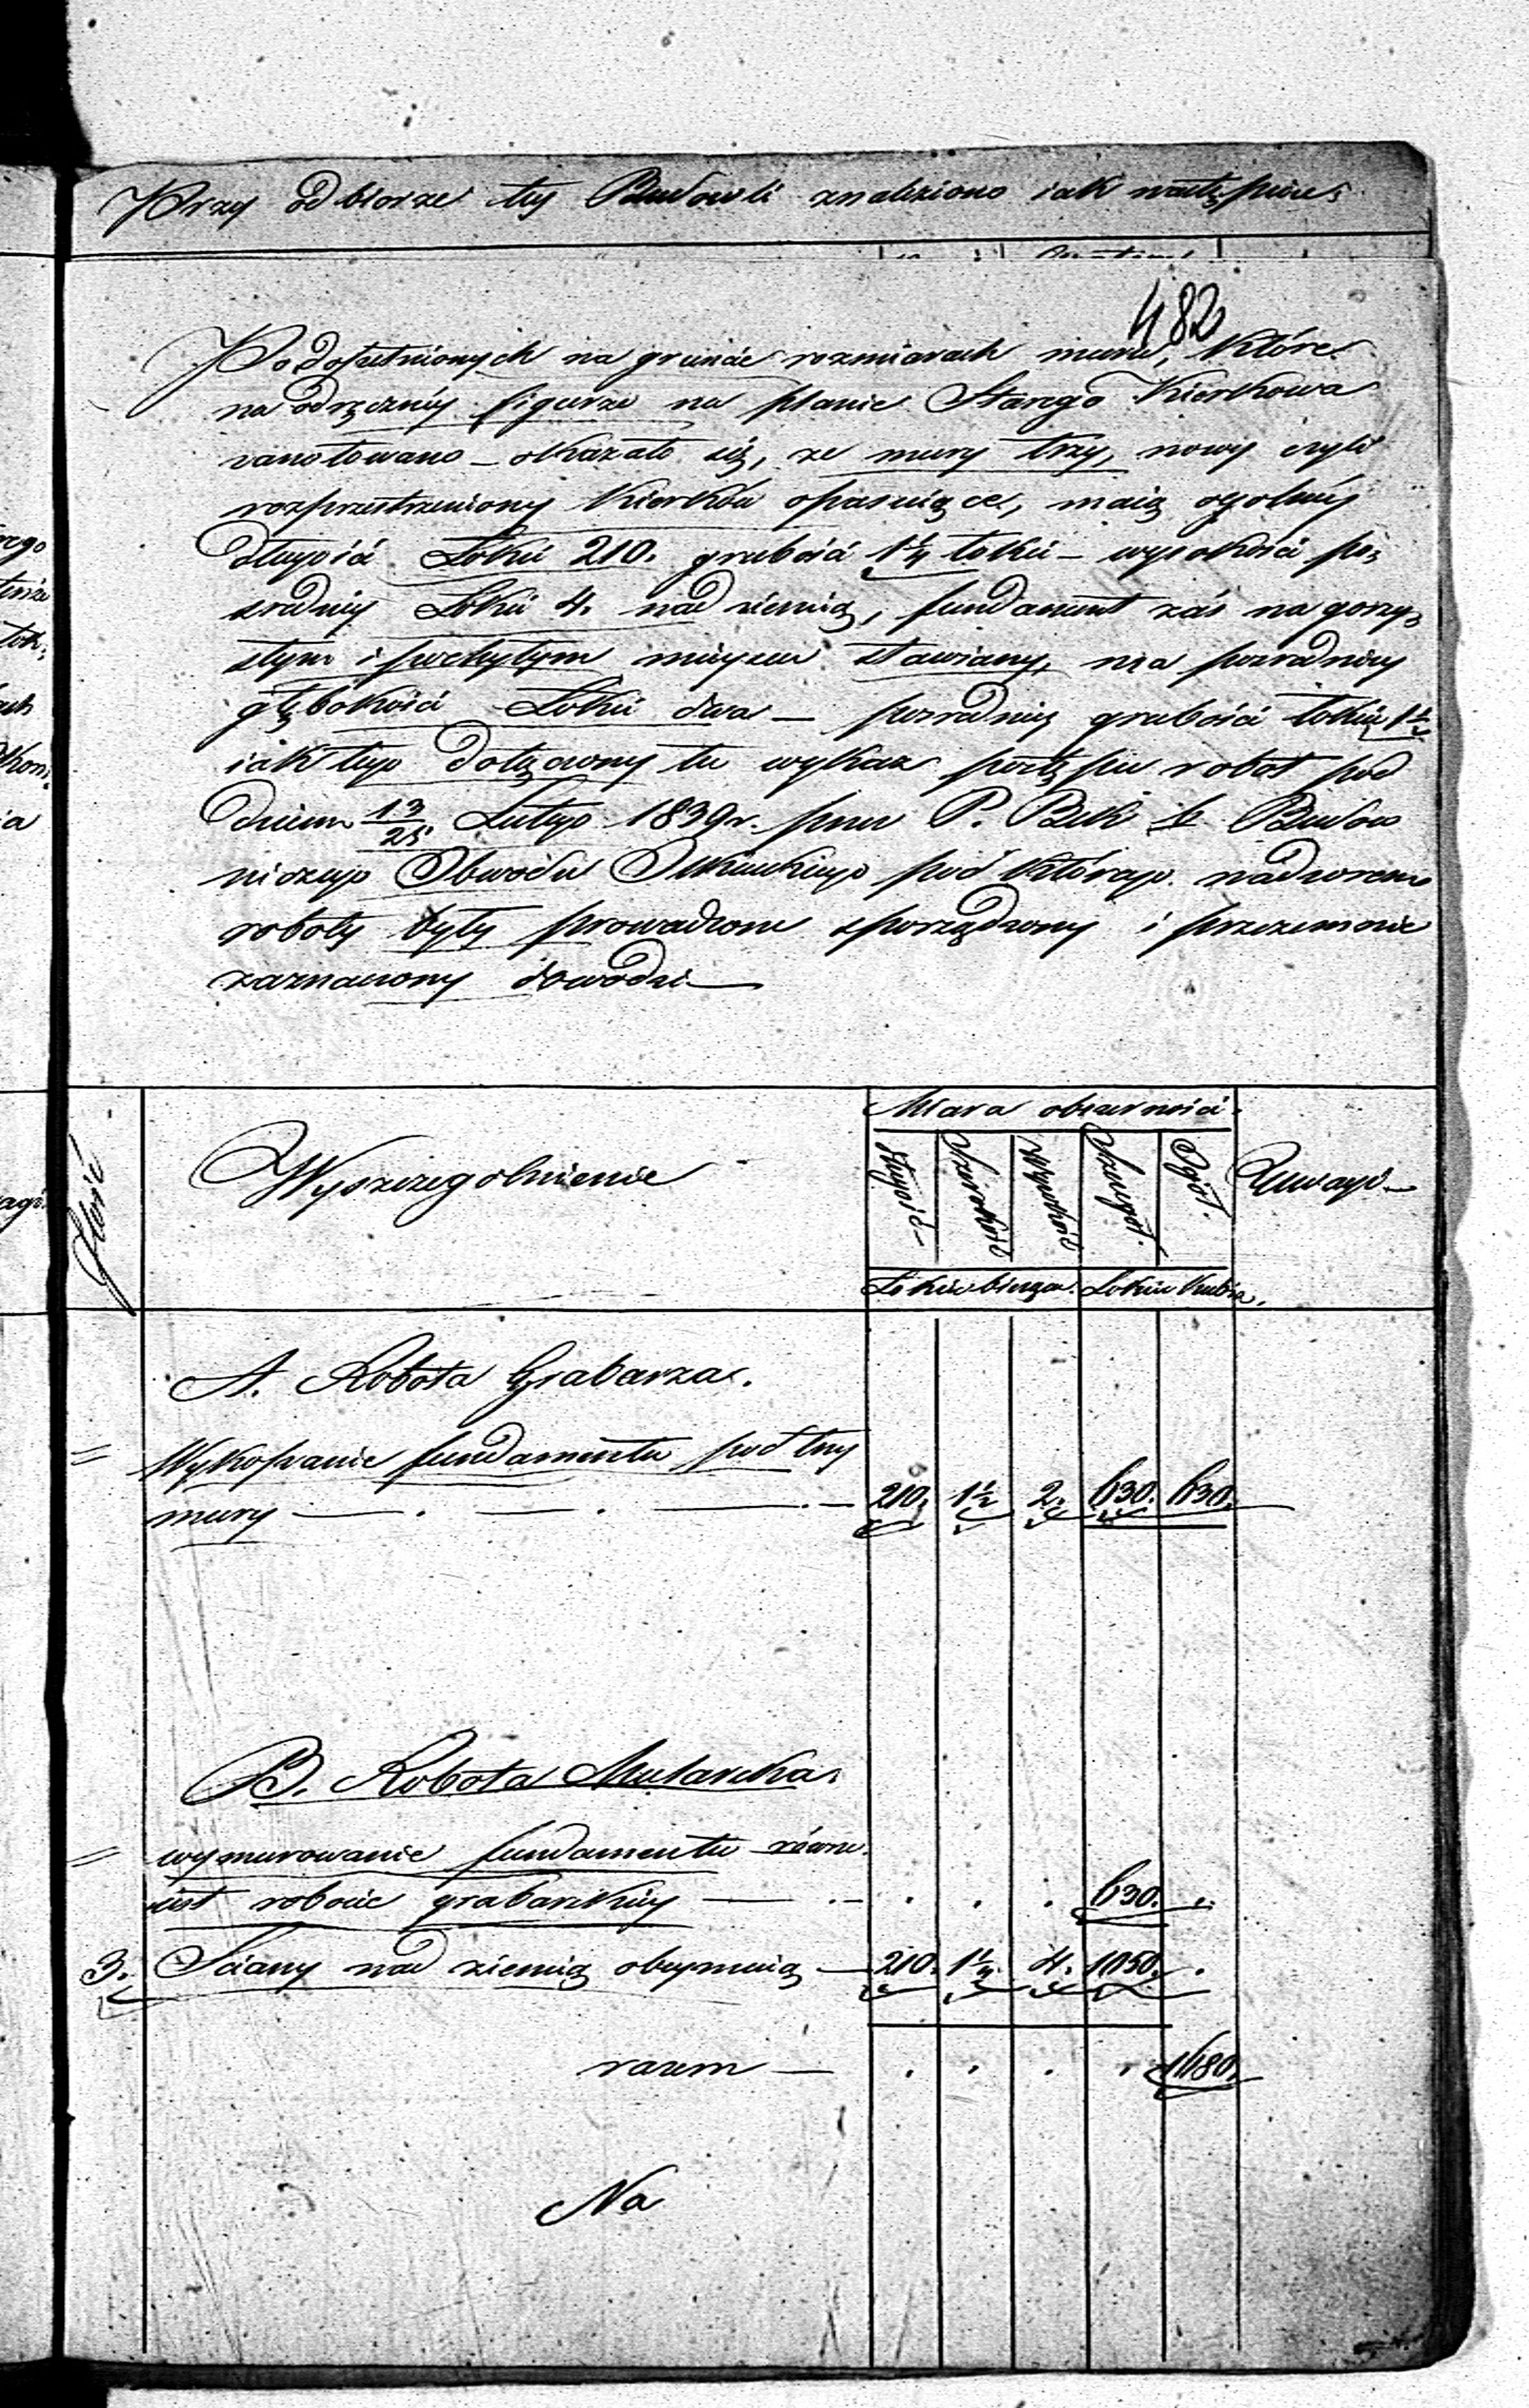 Przy odbiorze tey Budowli znaleziono iak nastę puie;
482
Podopełnionych na gruncie rozmiarach muru, które
na odręczney figurze na planie Starego Kierkowa
zanotowano – okazało się, że mury trzy, nowy czyli
rozprzestrzeniony Kierków opasuiące, maią ogolney
długość Łokci 210. grubość 1 1/4 łokci – wysokość po„
sredniey Łokci 4. nad ziemią, fundament zás na gorzy„
stym i pochyłym mieyscu stawiany, ma pozredniey
głębokość Łokci dwa – pozrednią grubość łokci 1 1/2
iak tego dołączony tu wykaz postępu robot pod
dniem 13/25 Lutego 1839 r. przez P. Bek Budow
niczego Obwodu Olkuskiego pod którego nadzorem
roboty były prowadzone sporządzony i przezemnie
zaznaczony dowodzi –
Ilość
Wyszczegolnienie
Miara obszerności.
długość –
Szerokość
Wysokość
Szczegół.
Ogół.
Uwagi –
Łokcie bieżące. Łokcie Kubicz.
A. Robota Grabarza.
= Wykopanie fundamentu pod trzy
mury – . – . – . – 210. 1 1/2 2. 630. 630.
B. Robota Mularska.
= wymurowanie fundamentu równe
iest robocie grabarskiey – . – . . . 630. „
3. Sciany nad ziemią obeymuią – 210. 1 1/4. 4. 1050. .
razem – . . . . 1680.
Na